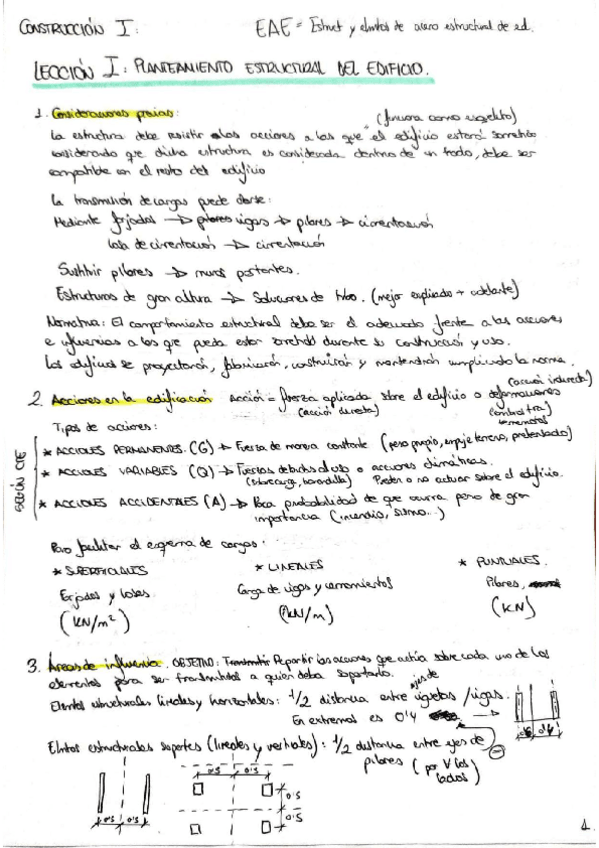 CONSTRUCCIÓN I: EAE = Estruct y elmtos de acero estructural de ed.
LECCIÓN I: PLANTEAMIENTO ESTRUCTURAL DEL EDIFICIO.
1. Consideraciones previas: (funciona como esqueleto)
La estructura debe resistir a las acciones a las que el edificio estará sometido
considerando que dicha estructura es considerada dentro de un todo, debe ser
compatible con el resto del edificio
La transmisión de cargas puede darse:
Mediante forjados → vigas → pilares → cimentación
losa de cimentación → cimentación
Sustituir pilares → muros portantes.
Estructuras de gran altura → Soluciones de tubo. (mejor explicado + adelante)
Normativa: El comportamiento estructural debe ser el adecuado frente a las acciones
e influencias a las que pueda estar sometido durante su construcción y uso.
Los edificios se proyectarán, fabricarán, construirán y mantendrán cumpliendo la norma.
(acción indirecta)
2. Acciones en la edificación Acción = fuerza aplicada sobre el edificio o deformaciones
(acción directa)
Tipos de acciones:
SEGÚN CTE
* ACCIONES PERMANENTES (G) → Fuerza de manera constante (peso propio, empuje terreno, pretensado)
* ACCIONES VARIABLES (Q) → Fuerzas debidas al uso o acciones climáticas.
(sobrecarga, barandilla) Pueden o no actuar sobre el edificio.
* ACCIONES ACCIDENTALES (A) → Poca probabilidad de que ocurra pero de gran
importancia (incendio, sismo...)
Para facilitar el esquema de cargas:
* SUPERFICIALES * LINEALES * PUNTUALES.
Forjados y losas Carga de vigas y cerramientos Pilares,
(KN/m²) (KN/m) (KN)
3. Áreas de influencia. OBJETIVO: Transmitir Repartir las acciones que actúa sobre cada uno de los
elementos para ser transmitidas a quien deba soportarla.
ejes de
Elmtos estructurales lineales y horizontales: 1/2 distancia entre viguetas / vigas.
En extremos es 0'4 →
0'4
Elmtos estructurales soportes (lineales y verticales): 1/2 distancia entre ejes de
pilares (por V los
lados)
0'5 0'5
0'5 0'5
0'5
0'5
1.